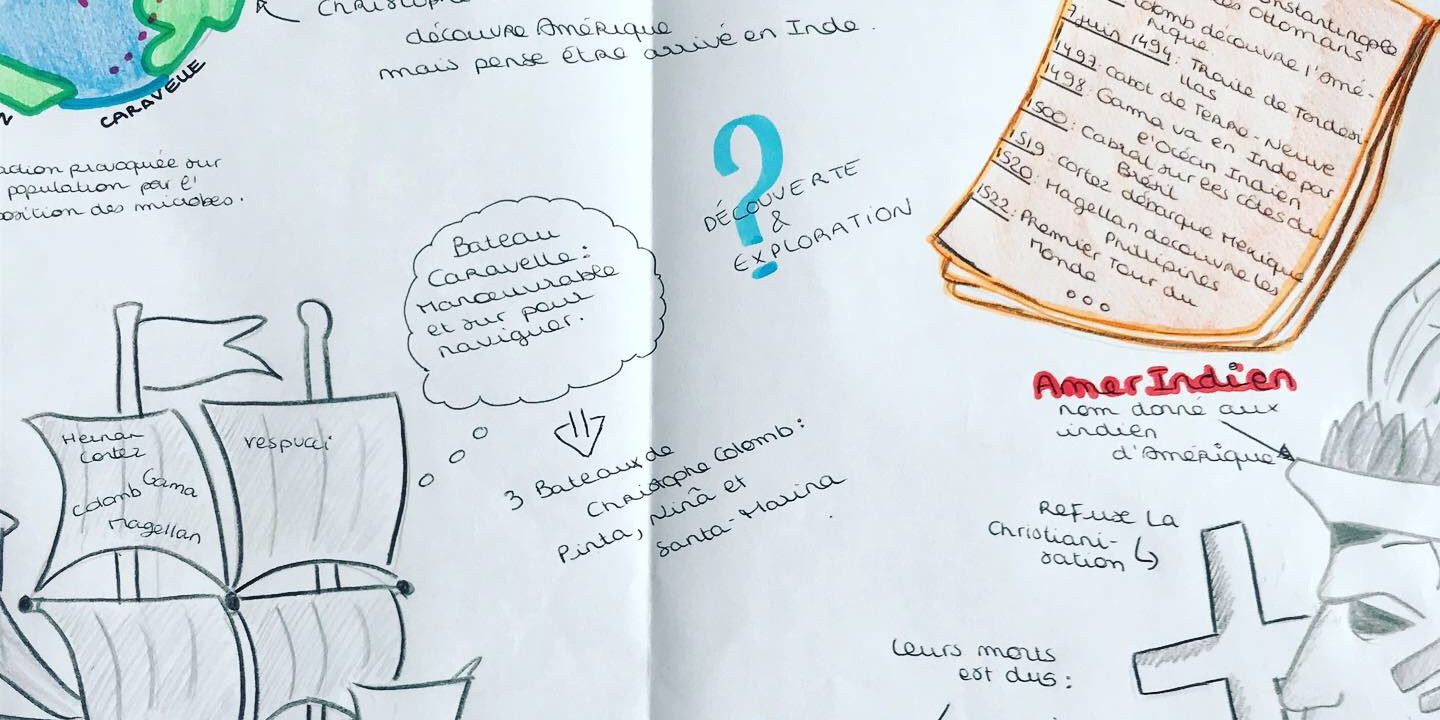 Christophe
découvre Amérique
mais pense être arrivé en Inde.
CARAVELLE
provoquée sur
population par l'
des microbes.
Bateau
Caravelle:
Manoeuvrable
et sur pour
naviguer.
?
DÉCOUVERTE
&
EXPLORATION
Constantinople
des Ottomans
Colomb découvre l'Amé-
rique.
7 juin 1494: Traité de Tordesi
llas
1497: Cabot de Terre-Neuve
1498: Gama va en Inde par
l'Océan Indien
1500: Cabral sur les côtes du
Brésil
1519: Cortez débarque Mexique
1520: Magellan découvre les
Philipines
1522: Premier Tour du
Monde
...
Hernan
Cortez
Gama
Colomb
Magellan
Vespucci
3 Bateaux de
Christophe Colomb:
Pinta, Ninâ et
Santa-Marina
AmerIndien
nom donné aux
indien
d'Amérique
Refuse La
Christiani-
sation
Leurs morts
est dus: